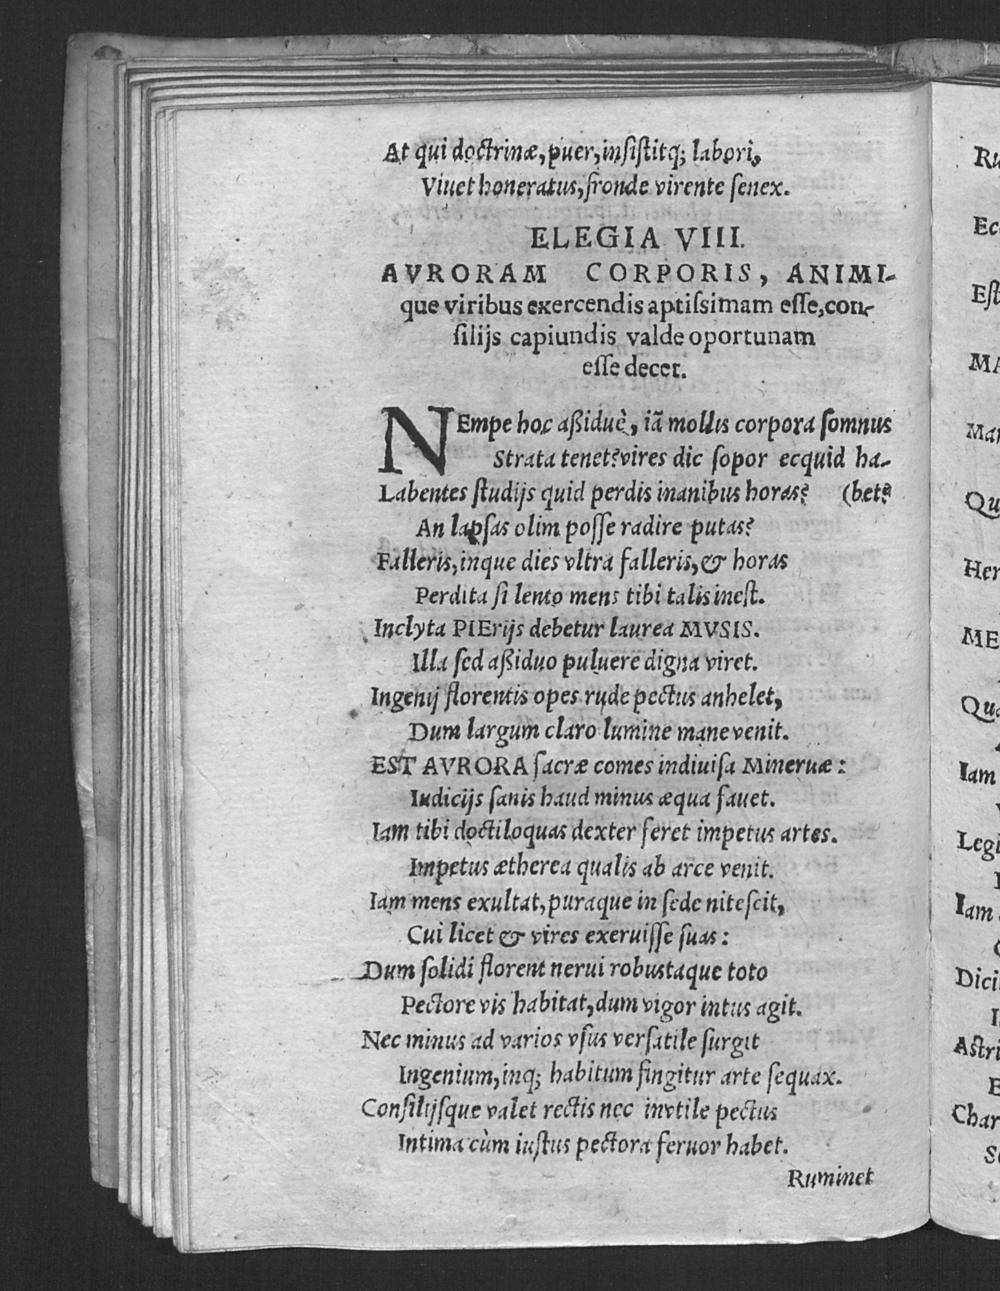 At qui doctrinæ, puer, insistitq; labori,
Viuet honeratus, fronde virente senex.
ELEGIA VIII.
AVRORAM CORPORIS, ANIMI-
que viribus exercendis aptissimam esse, con-
silijs capiundis valde oportunam
esse decet.
NEmpe hoc aßiduè, iã mollis corpora somnus
Strata tenet? vires dic sopor ecquid ha-
Labentes studijs quid perdis inanibus horas? (bet?
An lapsas olim posse radire putas?
Falleris, inque dies vltra falleris, & horas
Perdita si lento mens tibi talis inest.
Inclyta PIErijs debetur laurea MVSIS.
Illa sed aßiduo puluere digna viret.
Ingenij florentis opes rude pectus anhelet,
Dum largum claro lumine mane venit.
EST AVRORA sacræ comes indiuisa Mineruæ:
Iudicijs sanis haud minus æqua fauet.
Iam tibi doctiloquas dexter feret impetus artes.
Impetus ætherea qualis ab arce venit.
Iam mens exultat, puraque in sede nitescit,
Cui licet & vires exeruisse suas:
Dum solidi florent nerui robustaque toto
Pectore vis habitat, dum vigor intus agit.
Nec minus ad varios vsus versatile surgit
Ingenium, inq; habitum fingitur arte sequax.
Consilijsque valet rectis nec invtile pectus
Intima cùm iustus pectora feruor habet.
Ruminet
Ru
Ec
Est
MA
Mar
Qu
Her
ME
Qua
Iam
Legi
Iam
Dici
I
Astri
E
Char